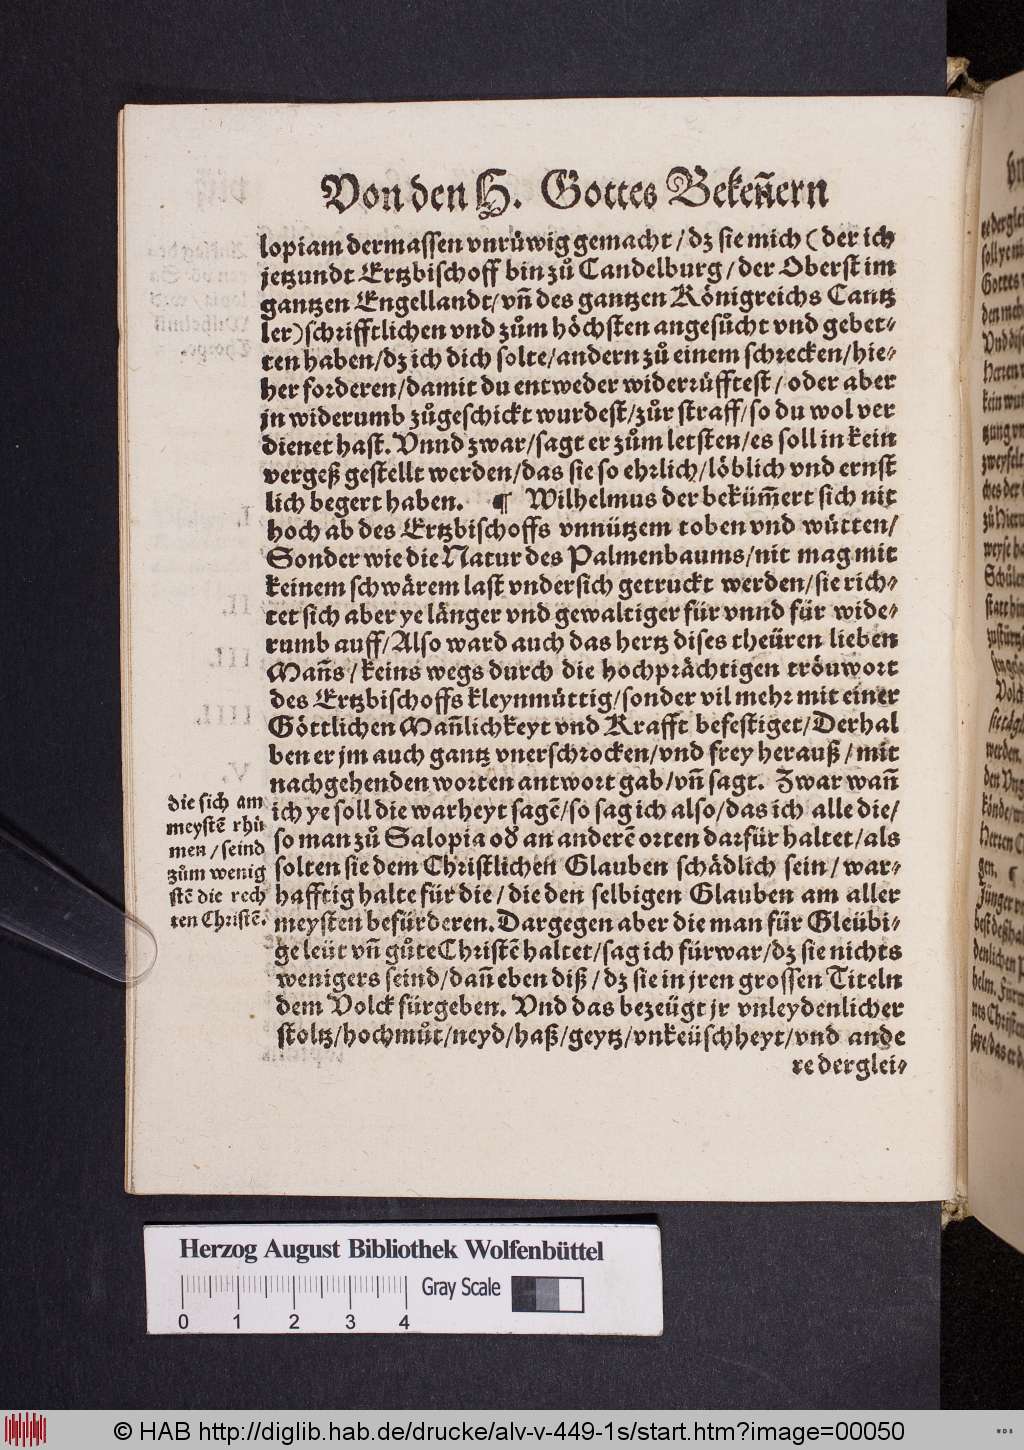 Von den H. Gottes Bekeñern
lopiam dermassen vnrüwig gemacht / dz sie mich ( der ich
jetzundt Ertzbischoff bin zů Candelburg / der Oberst im
gantzen Engellandt / vñ des gantzen Königreichs Cantz
ler) schrifftlichen vnd zům höchsten angesůcht vnd gebet⸗
ten haben / dz ich dich solte / andern zů einem schrecken / hie⸗
her forderen / damit du entweder widerrüfftest / oder aber
jn widerumb zůgeschickt wurdest / zůr straff / so du wol ver
dienet hast. Vnnd zwar / sagt er zům letsten / es soll in kein
vergeß gestellt werden / das sie so ehrlich / löblich vnd ernst
lich begert haben. ¶ Wilhelmus der bekům̃ert sich nit
hoch ab des Ertzbischoffs vnnützem toben vnd wütten /
Sonder wie die Natur des Palmenbaums / nit mag mit
keinem schwärem last vndersich getruckt werden / sie rich⸗
tet sich aber ye länger vnd gewaltiger für vnnd für wide⸗
rumb auff / Also ward auch das hertz dises theüren lieben
Mañs / keins wegs durch die hochprächtigen tröuwort
des Ertzbischoffs kleynmüttig / sonder vil mehr mit einer
Göttlichen Mañlichkeyt vnd Krafft befestiget / Derhal
ben er jm auch gantz vnerschrocken / vnd frey herauß / mit
nachgehenden worten antwort gab / vñ sagt. Zwar wañ
ich ye soll die warheyt sagẽ / so sag ich also / das ich alle die /
so man zů Salopia oď an anderẽ orten darfür haltet / als
solten sie dem Christlichen Glauben schädlich sein / war⸗
hafftig halte für die / die den selbigen Glauben am aller
meysten befürderen. Dargegen aber die man für Gleübi⸗
ge leüt vñ gůte Christẽ haltet / sag ich fürwar / dz sie nichts
wenigers seind / dañ eben diß / dz sie in jren grossen Titeln
dem Volck fürgeben. Vnd das bezeügt jr vnleydenlicher
stoltz / hochmůt / neyd / haß / geytz / vnkeüschheyt / vnd ande
re derglei⸗
die sich am
meystẽ rhů
men / seind
zům wenig
stẽ die rech
ten Christẽ.
Herzog August Bibliothek Wolfenbüttel
Gray Scale
0 1 2 3 4
© HAB http://diglib.hab.de/drucke/alv-v-449-1s/start.htm?image=00050